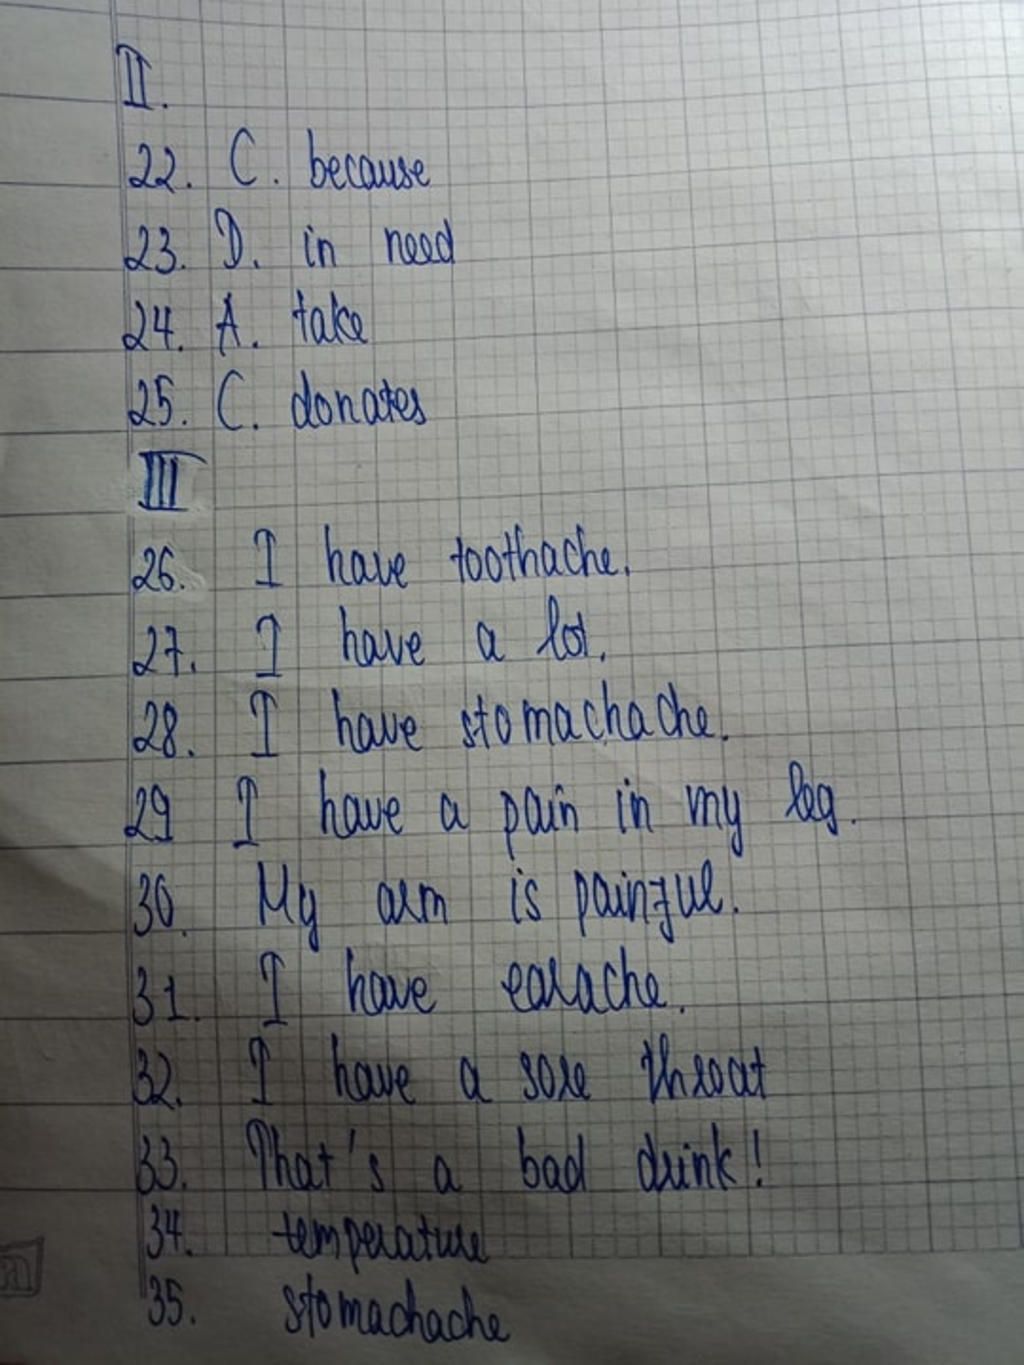 II.
22. C. because
23. D. in need
24. A. take
25. C. donates
III
26. I have toothache.
27. I have a lot.
28. I have stomachache.
29 I have a pain in my leg.
30. My arm is painful.
31. I have earache.
32. I have a sore throat
33. That's a bad drink!
34. temperature
35. stomachache